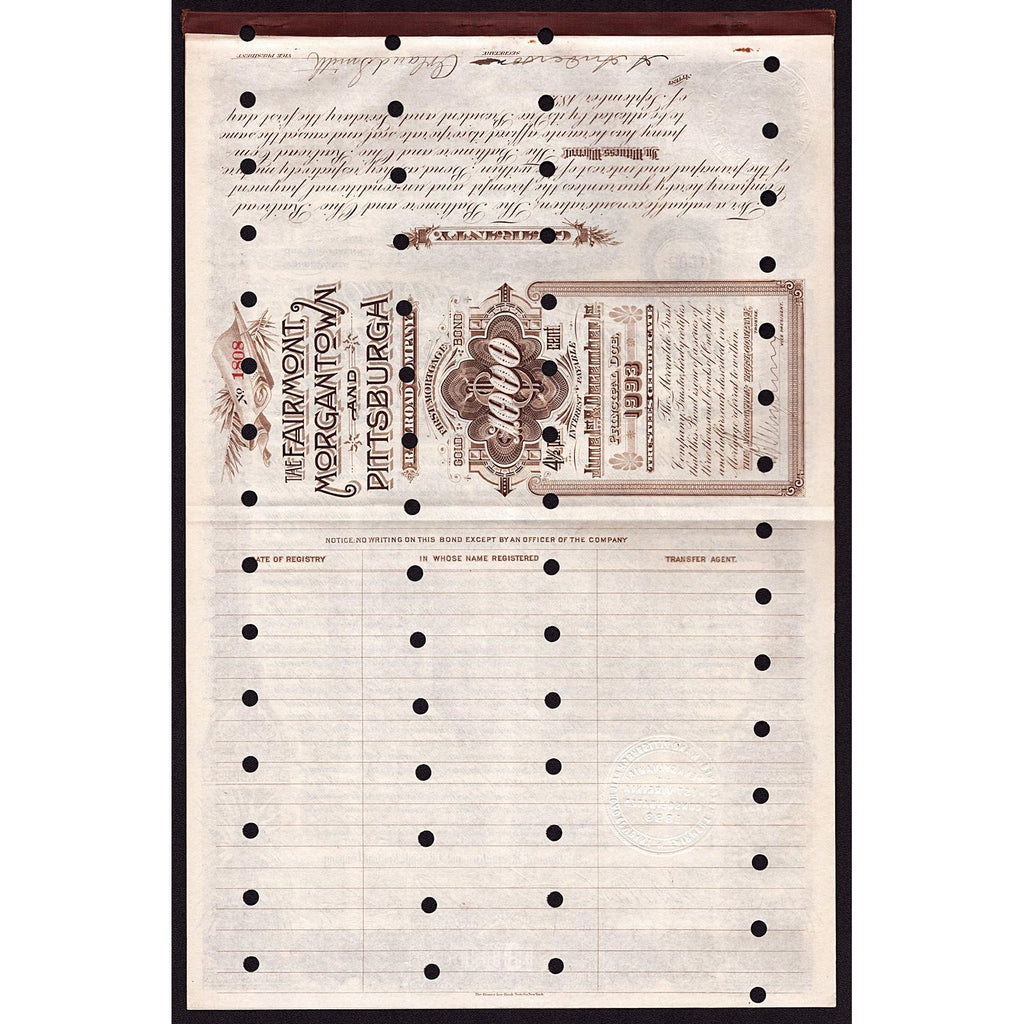 GUARANTY.
For a valuable consideration, The Baltimore and Ohio Railroad
Company hereby guarantees the prompt and unconditional payment
of the principal and interest of the within Bond as they respectively mature.
In Witness Whereof, The Baltimore and Ohio Railroad Com
pany has hereunto affixed its corporate seal and caused the same
to be attested by its Vice President and Secretary the first day
of September 189
ATTEST
SECRETARY.
Orland Smith
VICE PRESIDENT.
No 1808
THE FAIRMONT,
MORGANTOWN
AND
PITTSBURGH
RAILROAD COMPANY.
FIRST MORTGAGE
GOLD BOND
$1000
4 ½ per cent.
INTEREST PAYABLE
June 1st & December 1st
PRINCIPAL DUE
1993
TRUSTEE'S CERTIFICATE
The Mercantile Trust
Company, Trustee, hereby certifies
that this Bond is one of a series of
three thousand bonds of one thous
and dollars each described in the
Mortgage referred to within.
TRUST COMPANY,
TRUSTEE.
VICE PRESIDENT.
NOTICE: NO WRITING ON THIS BOND EXCEPT BY AN OFFICER OF THE COMPANY
DATE OF REGISTRY
IN WHOSE NAME REGISTERED
TRANSFER AGENT.